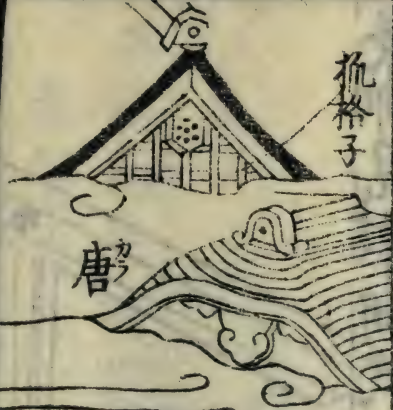 狐格子
唐カラ